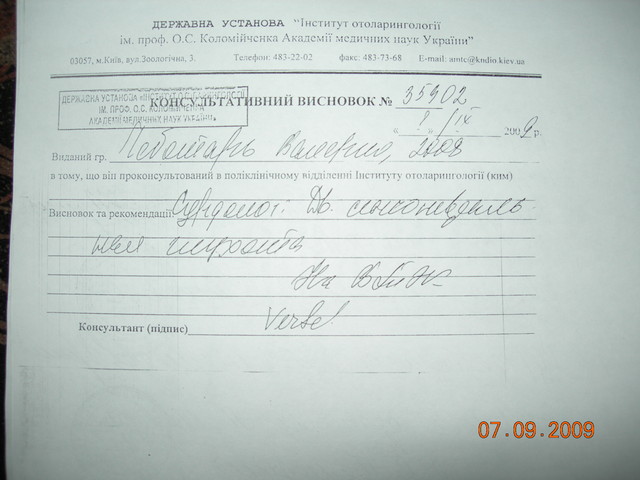 ДЕРЖАВНА УСТАНОВА “Інститут отоларингології
ім. проф. О.С. Коломійченка Академії медичних наук України”
03057, м.Київ, вул.Зоологічна, 3. Телефони: 483-22-02 факс: 483-73-68 E-mail: amtc@kndio.kiev.ua
ДЕРЖАВНА УСТАНОВА «ІНСТИТУТ ОТОЛАРИНГОЛОГІЇ
ІМ. ПРОФ. О.С. КОЛОМІЙЧЕНКА
АКАДЕМІЇ МЕДИЧНИХ НАУК УКРАЇНИ»
КОНСУЛЬТАТИВНИЙ ВИСНОВОК № 35902
« » IX 2009 р.
Виданий гр. 2008
в тому, що він проконсультований в поліклінічному відділенні Інституту отоларингології (ким)
Висновок та рекомендації: Сурдолог: Дв.
На
Консультант (підпис)
07.09.2009